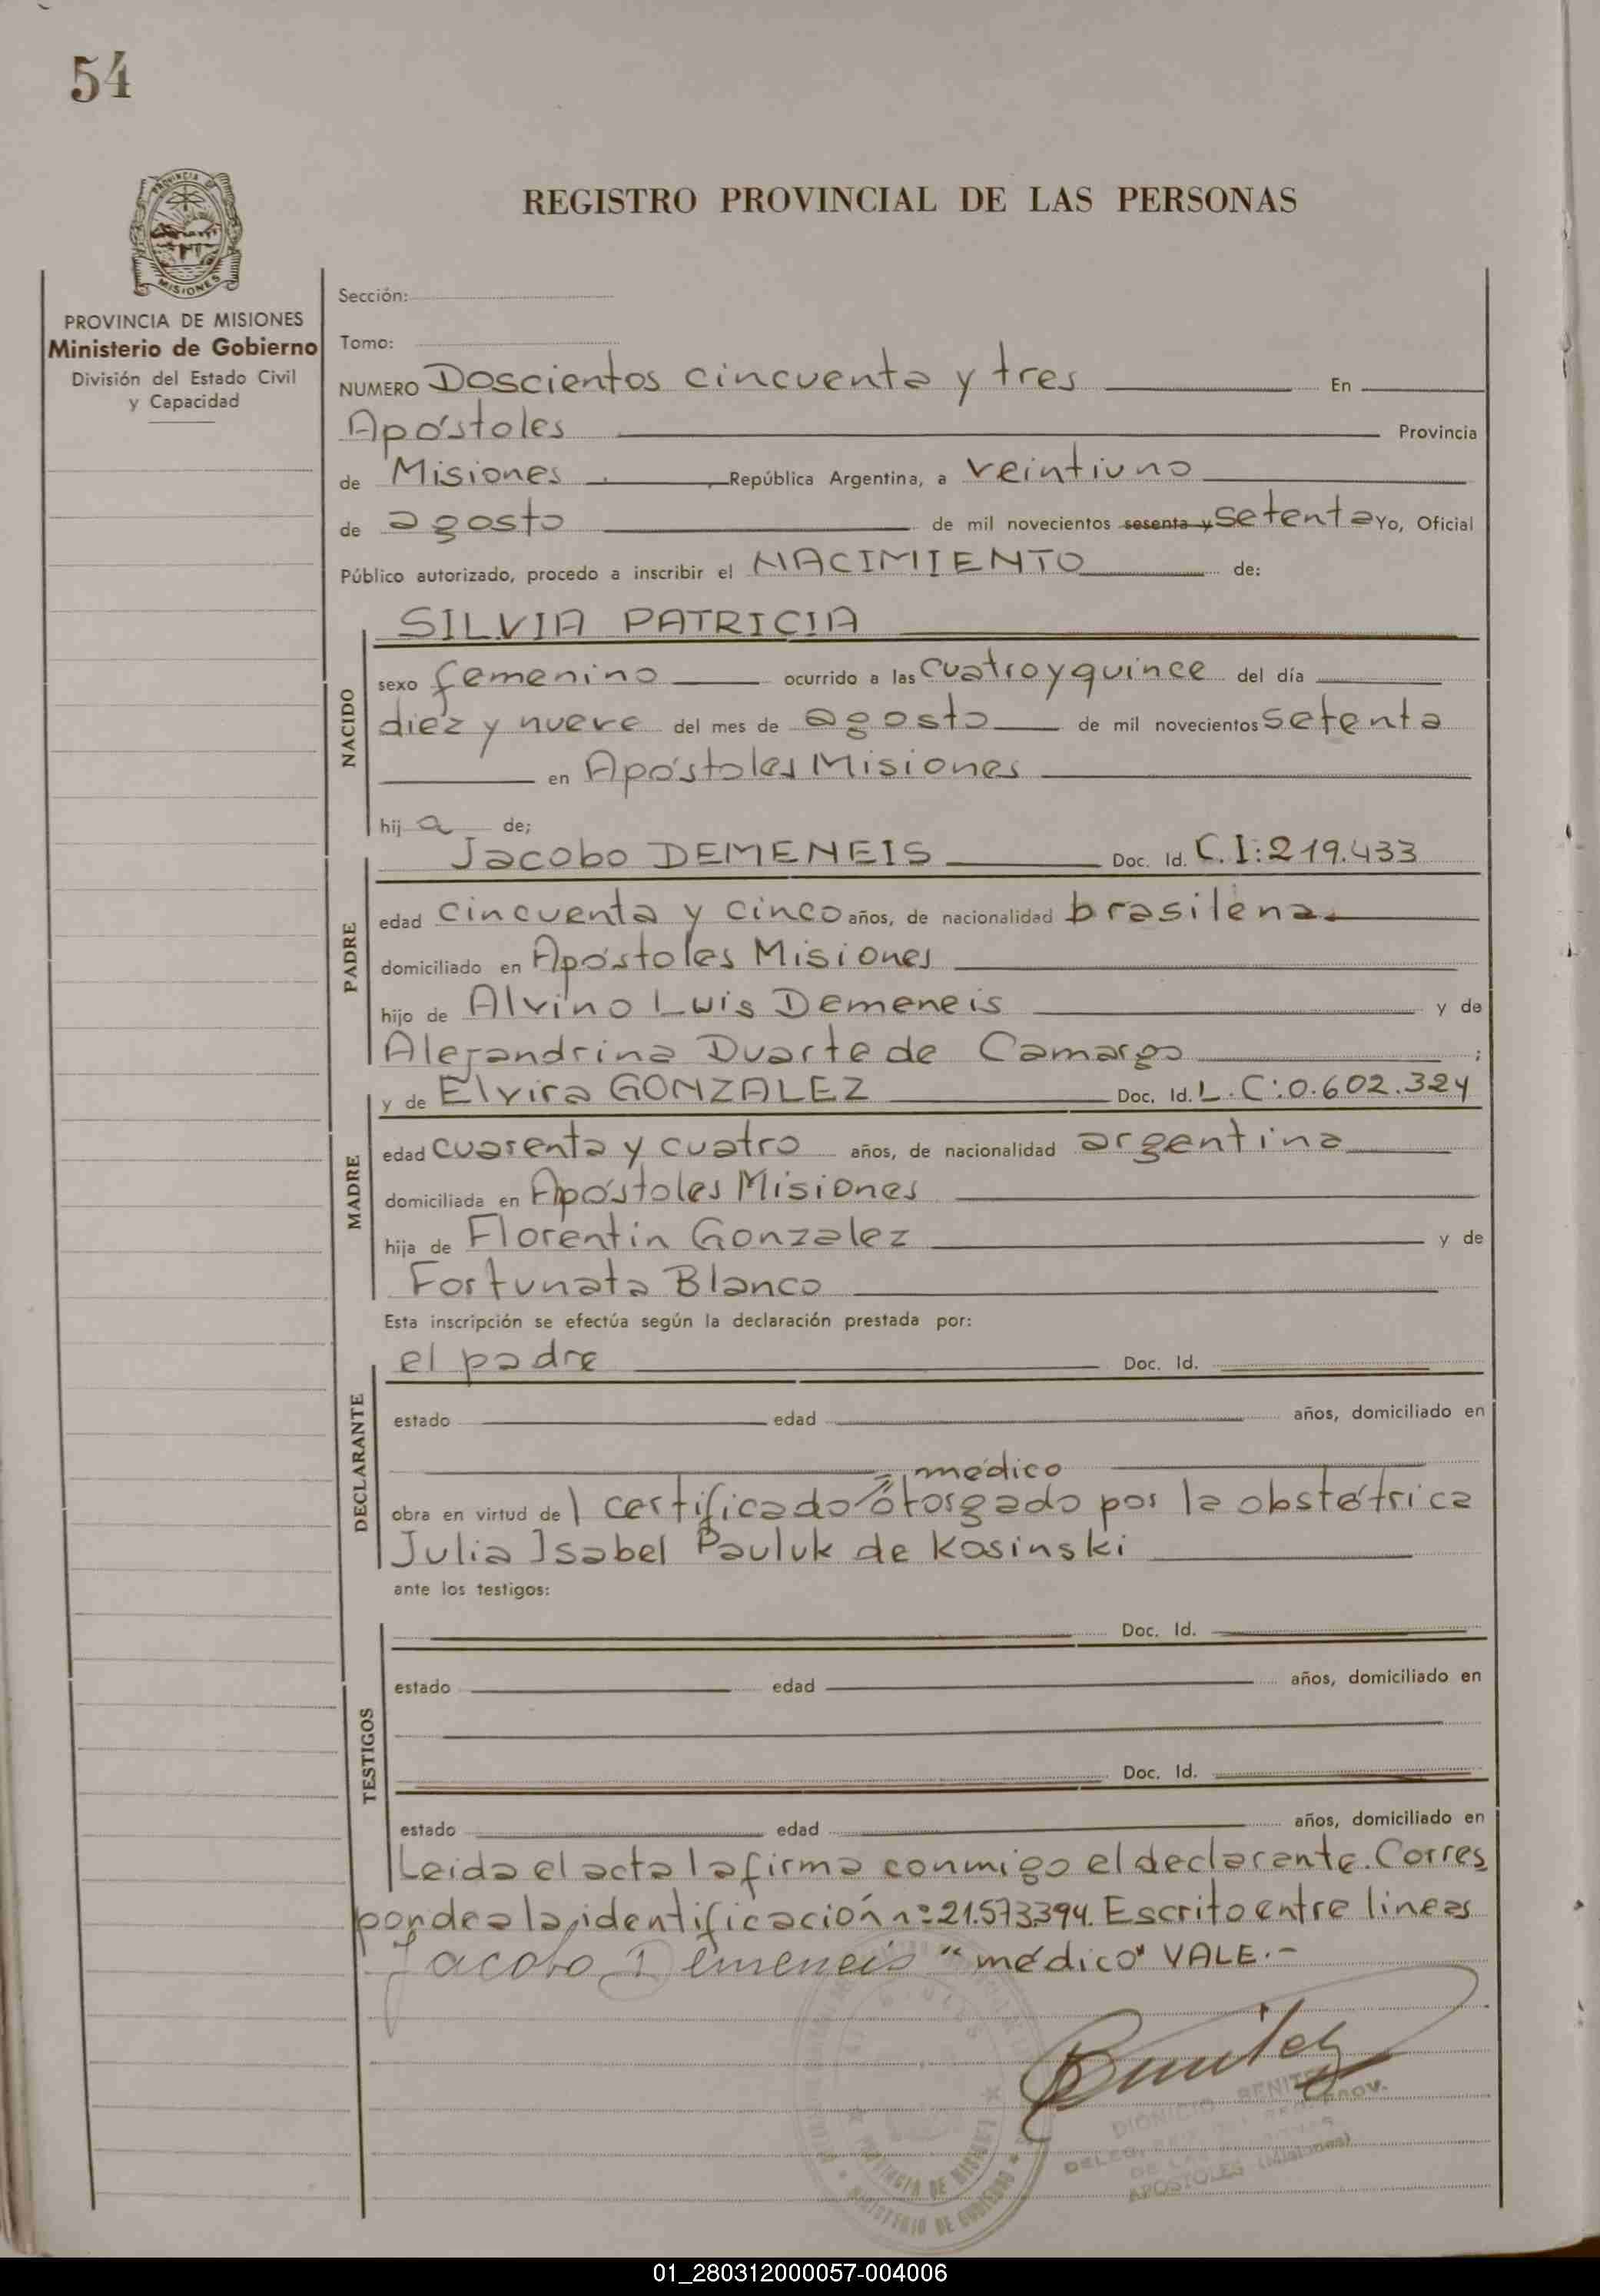 54
PROVINCIA DE
MISIONES
PROVINCIA DE MISIONES
Ministerio de Gobierno
División del Estado Civil
y Capacidad
REGISTRO PROVINCIAL DE LAS PERSONAS
Sección:
Tomo:
NUMERO Doscientos cincuenta y tres En
Apóstoles Provincia
de Misiones, República Argentina, a veintiuno
de agosto de mil novecientos sesenta y setenta Yo, Oficial
Público autorizado, procedo a inscribir el NACIMIENTO de:
SILVIA PATRICIA
NACIDO
sexo femenino ocurrido a las cuatro y quince del día
diez y nueve del mes de agosto de mil novecientos setenta
en Apóstoles Misiones
hij a de;
Jacobo DEMENEIS Doc. Id. C.I:219.433
PADRE
edad cincuenta y cinco años, de nacionalidad brasilena.
domiciliado en Apóstoles Misiones
hijo de Alvino Luis Demeneis y de
Alejandrina Duarte de Camargo ;
y de Elvira GONZALEZ Doc. Id. L.C:0.602.324
MADRE
edad cuarenta y cuatro años, de nacionalidad argentina
domiciliada en Apóstoles Misiones
hija de Florentín Gonzalez y de
Fortunata Blanco
Esta inscripción se efectúa según la declaración prestada por:
el padre Doc. Id.
DECLARANTE
estado edad años, domiciliado en
médico
obra en virtud de 1 certificado otorgado por la obstétrica
Julia Isabel Pauluk de Kosinski
ante los testigos:
Doc. Id.
TESTIGOS
estado edad años, domiciliado en
Doc. Id.
estado edad años, domiciliado en
Leida el acta la firma conmigo el declarante. Corres
ponde a la identificación nº 21.573.394. Escrito entre lineas
Jacobo Demeneis "médico" VALE.-
Benitez
DIONICIO BENITEZ
DE LAS
APOSTOLES (Misiones)
PROVINCIA DE MISIONES
MINISTERIO DE GOBIERNO
01_280312000057-004006